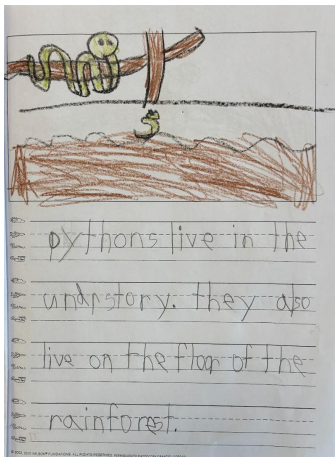 pythons live in the
undrstory. they also
live on the floor of the
rainforest.